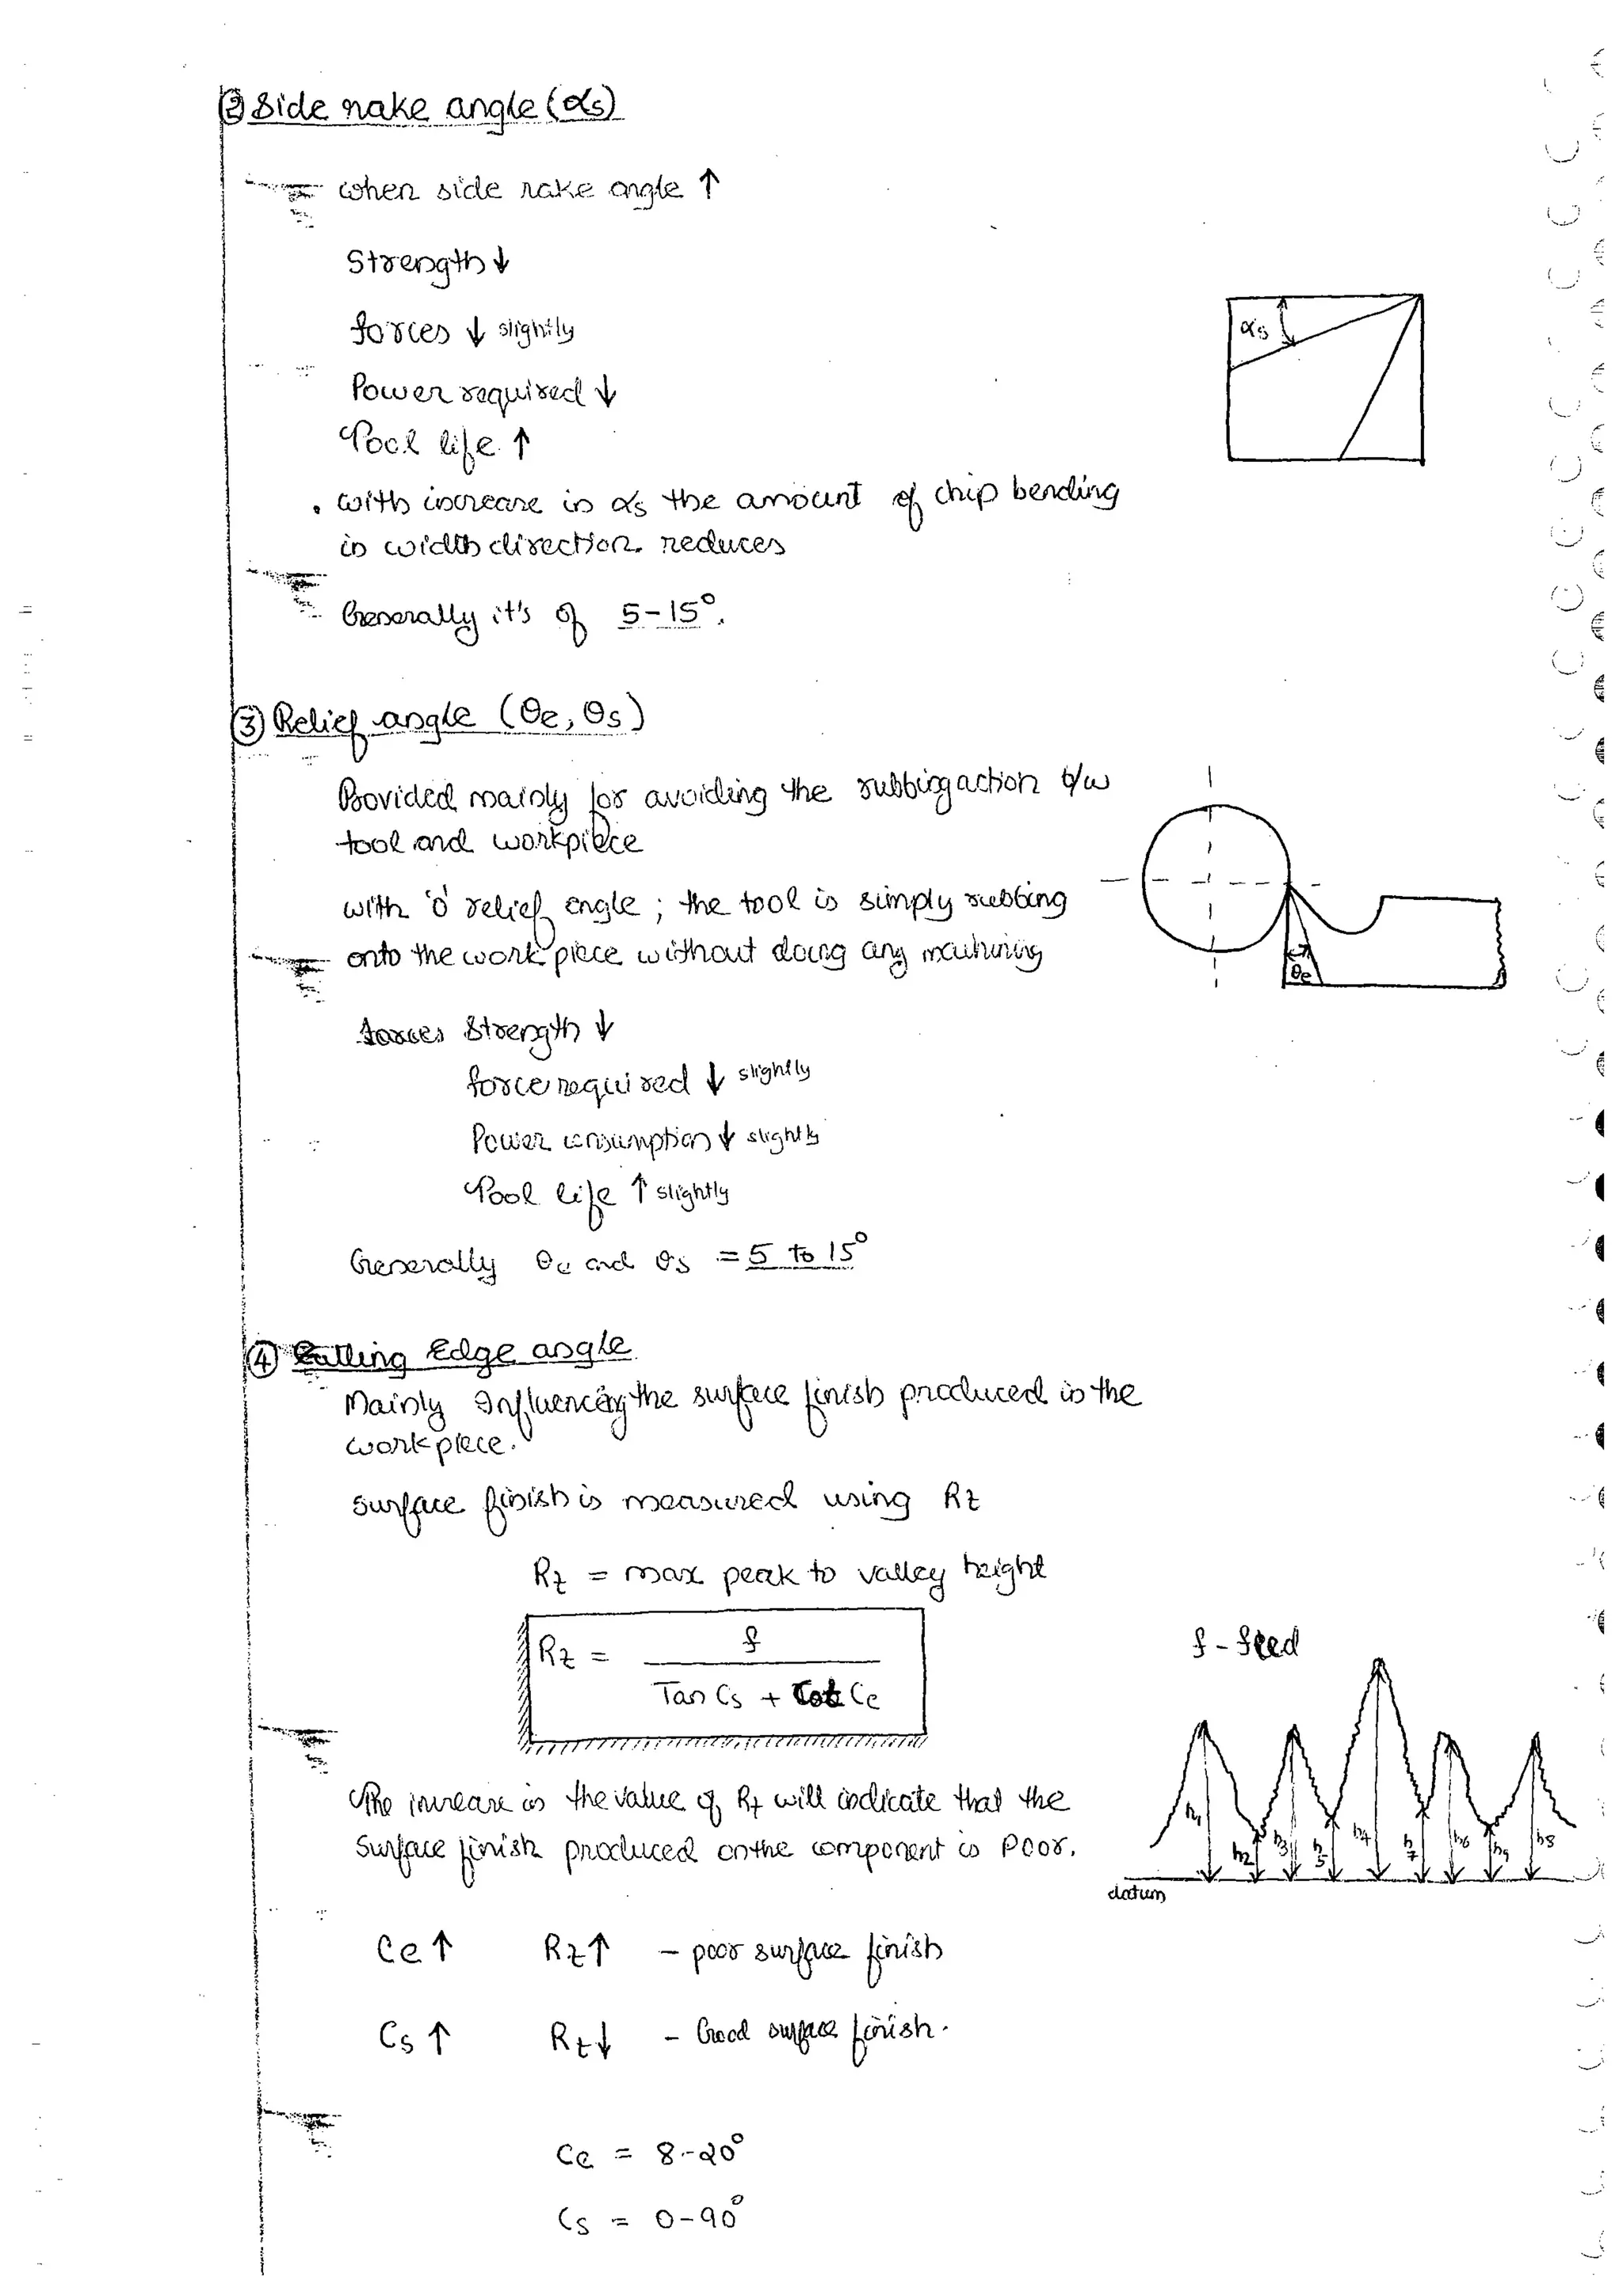 ② Side rake angle (αs)
when side rake angle ↑
Strength ↓
forces ↓ slightly
Power required ↓
Tool life ↑
αs
• with increase in αs the amount of chip bending
in width direction reduces
Generally it's of 5-15°.
③ Relief angle (θe, θs)
Provided mainly for avoiding the rubbing action b/w
tool and workpiece
with '0' relief angle ; the tool is simply rubbing
onto the workpiece without doing any machining
θe
forces Strength ↓
force required ↓ slightly
Power consumption ↓ slightly
Tool life ↑ slightly
Generally θe and θs = 5 to 15°
④ Cutting Edge angle
Mainly Influencing the surface finish produced in the
workpiece.
surface finish is measured using Rz
Rz = max peak to valley height
Rz = f / (Tan Cs + Cot Ce)
f - feed
h1 h2 h3 h5 h4 h7 h6 h9 h8
datum
The increase in the value of Rz will indicate that the
surface finish produced on the component is poor.
Ce ↑ Rz ↑ - poor surface finish
Cs ↑ Rz ↓ - Good surface finish.
Ce = 8-20°
Cs = 0-90°